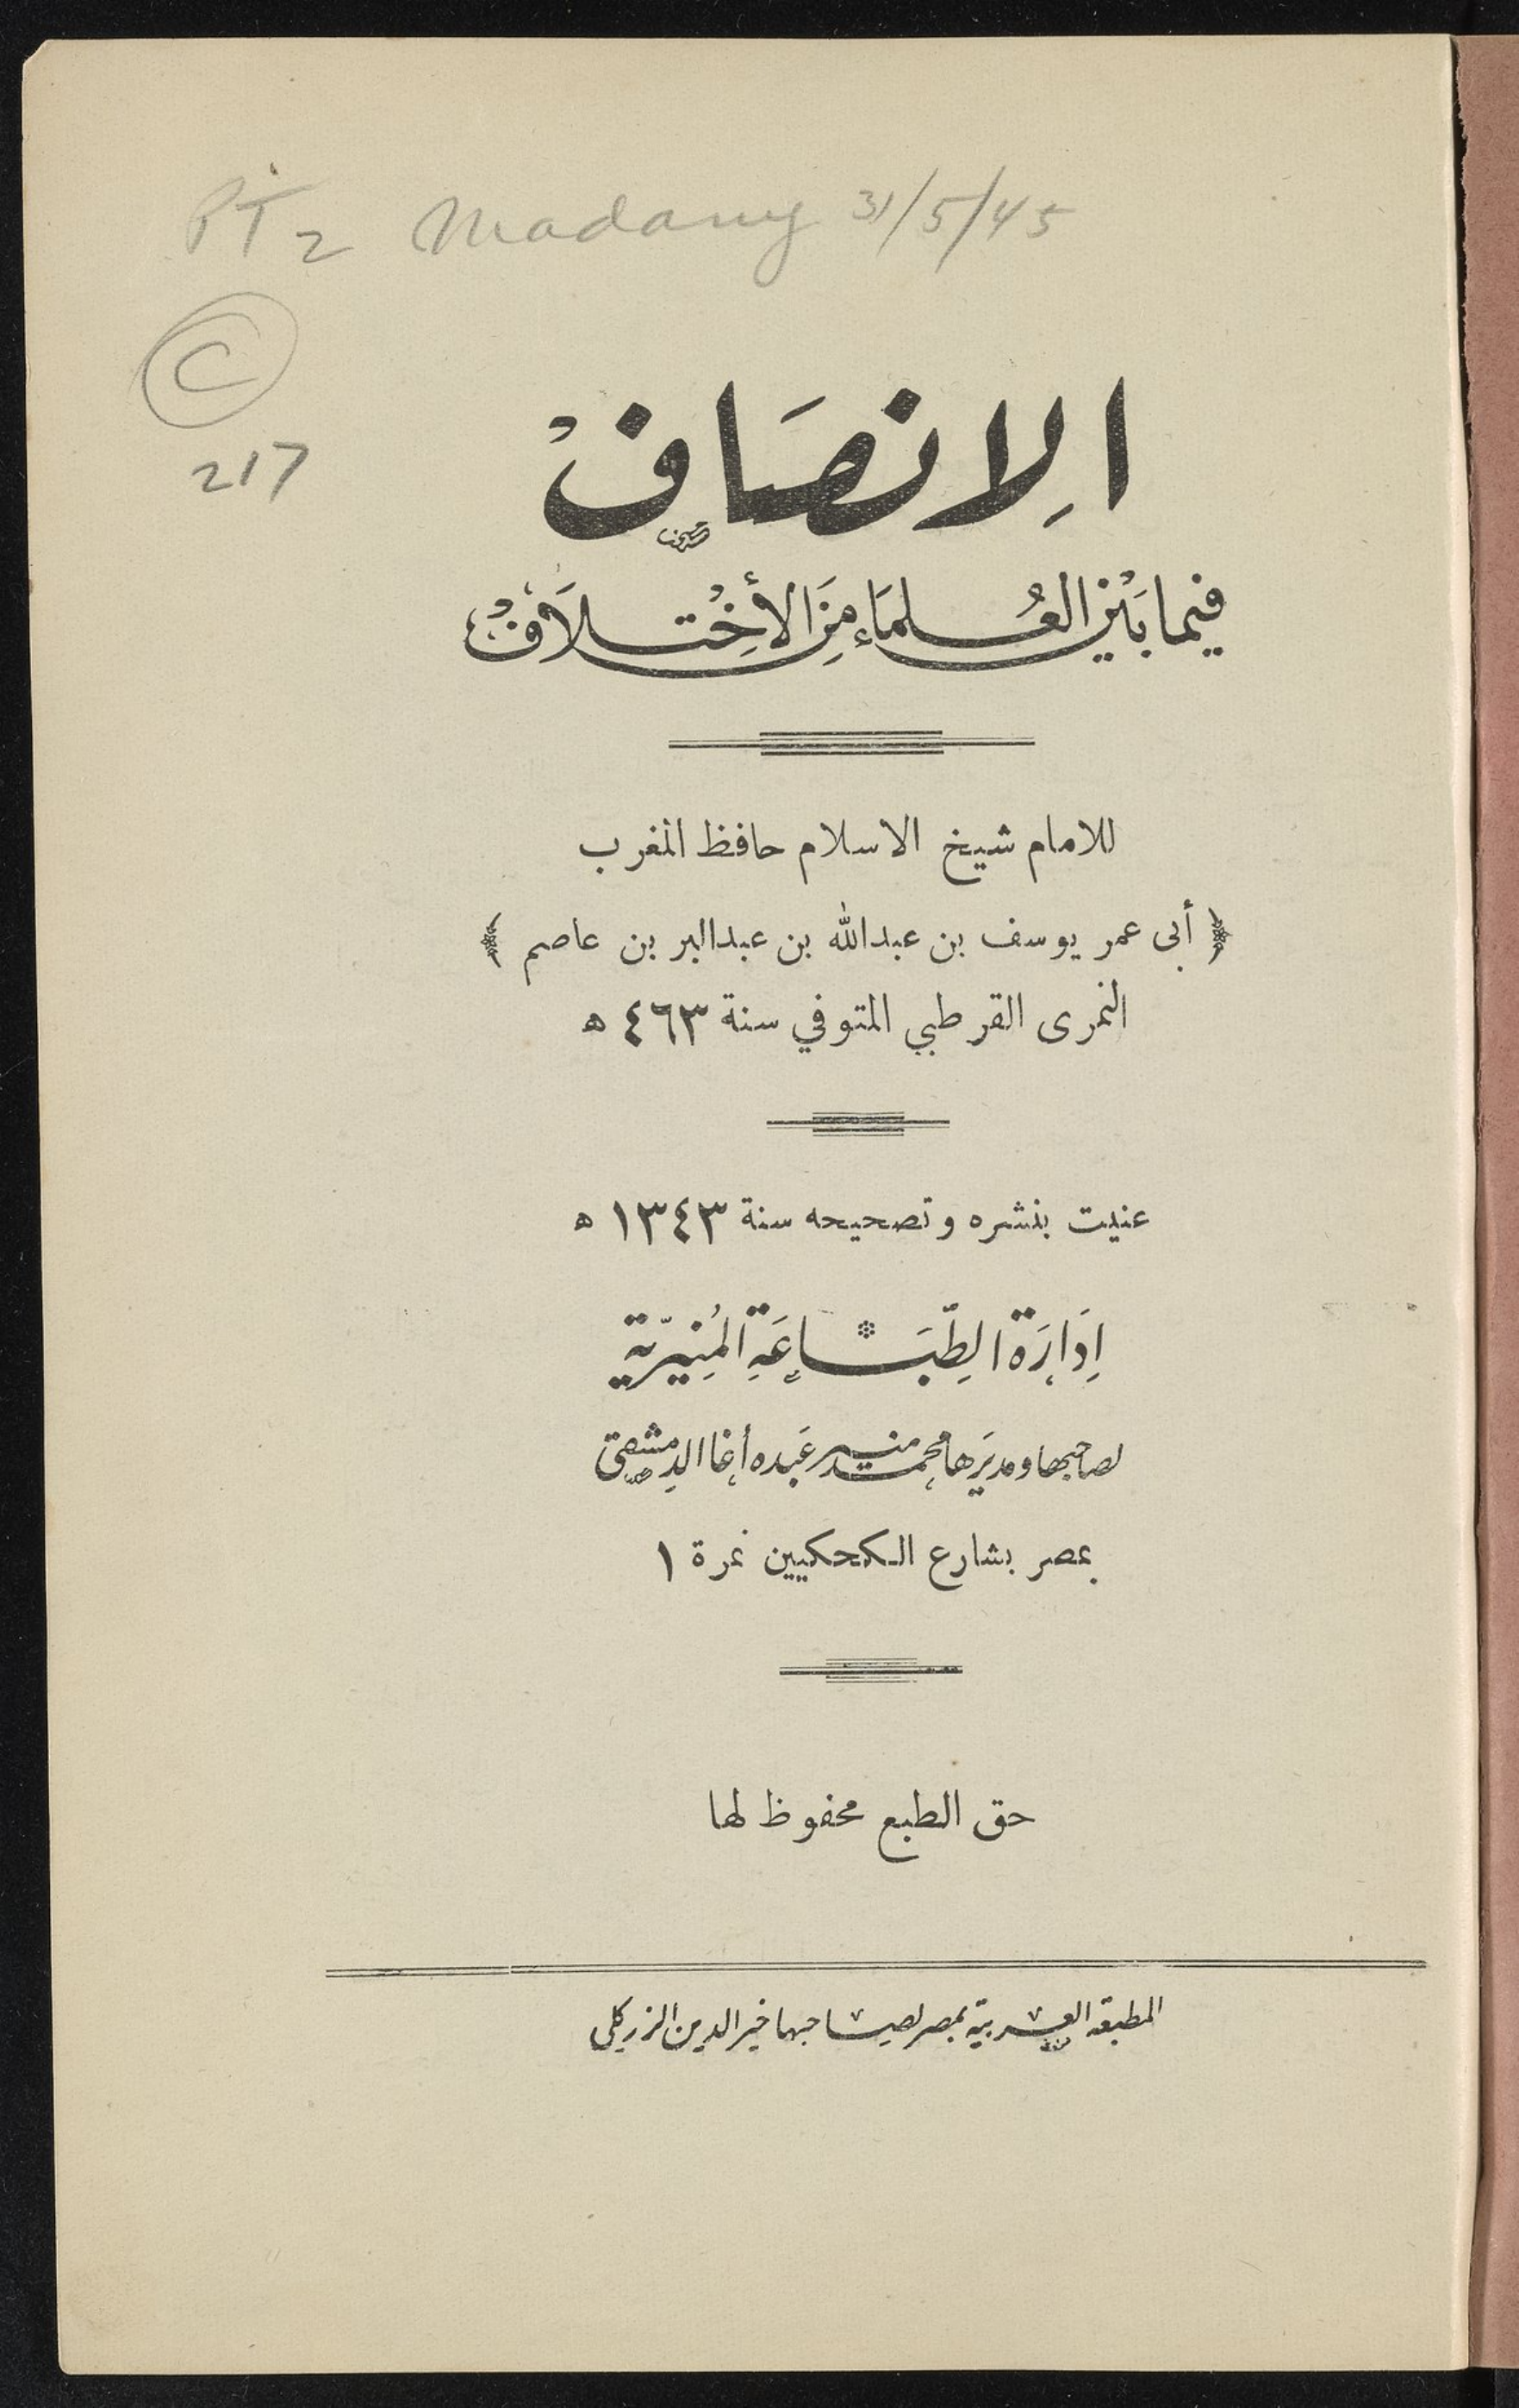 PT 2 Madany 31/5/45
C
217
الاِنصَافْ
فيما بَيْن العُلمَاءِ مِنَ الأخِْتلَافْ
للامام شيخ الاسلام حافظ المغرب
﴿ أبى عمر يوسف بن عبدالله بن عبدالبر بن عاصم ﴾
النمرى القرطبي المتوفي سنة ٤٦٣ ه
عنيت بنشره وتصحيحه سنة ١٣٤٣ ه
اِدَارَة الطِّبَاعَةِ المُنِيرّية
لصاحبها ومديَرها محمد منير عَبده أغا الدِمشقى
بمصر بشارع الكحكيين نمرة ١
حق الطبع محفوظ لها
المطبعة العربية بمصر لصاحبها خير الدين الزركلى